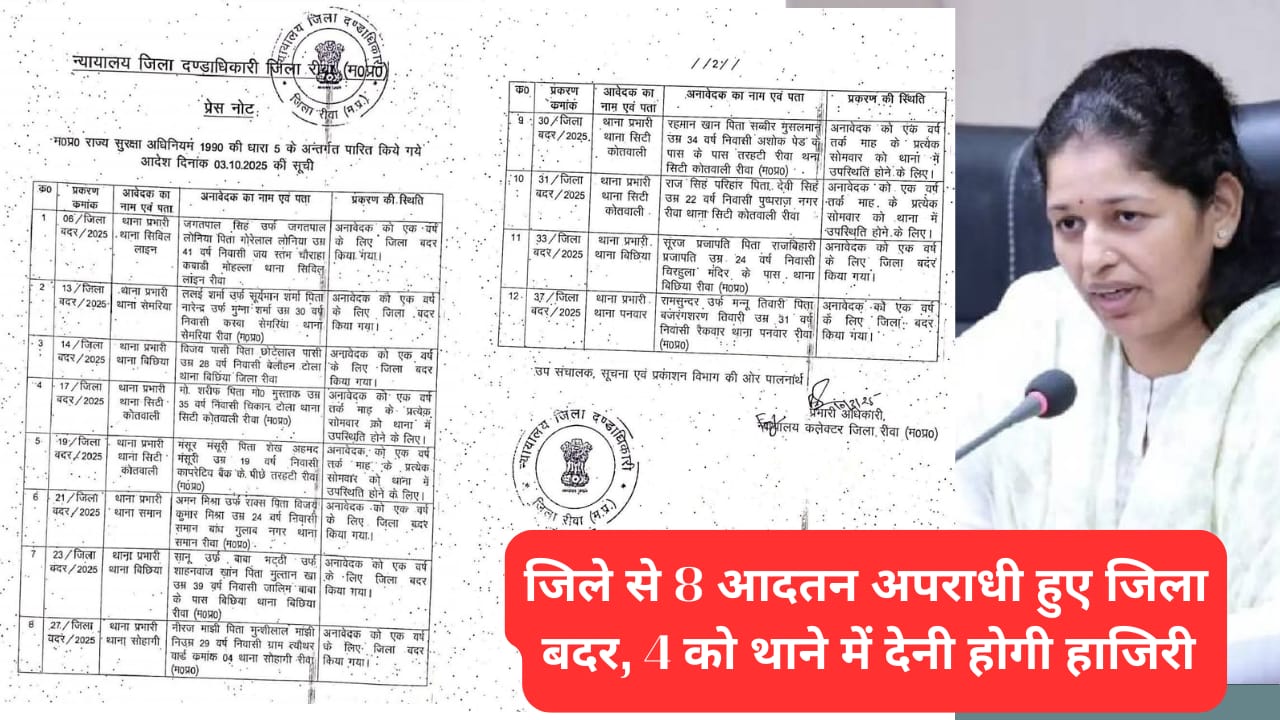 न्यायालय जिला दण्डाधिकारी जिला रीवा (म०प्र०)
प्रेस नोट
म०प्र० राज्य सुरक्षा अधिनियम 1990 की धारा 5 के अन्तर्गत पारित किये गये
आदेश दिनांक 03.10.2025 की सूची
क० प्रकरण कमांक आवेदक का नाम एवं पता अनावेदक का नाम एवं पता प्रकरण की स्थिति
1 06/जिला बदर/2025 थाना प्रभारी थाना सिविल लाइन जगतपाल सिंह उर्फ जगतपाल लोनिया पिता गोरेलाल लोनिया उम्र 41 वर्ष निवासी जय स्तंभ चौराहा कबाडी मोहल्ला थाना सिविल लाइन रीवा अनावेदक को एक वर्ष के लिए जिला बदर किया गया।
2 13/जिला बदर/2025 थाना प्रभारी थाना सेमरिया ललई शर्मा उर्फ सूर्यमान शर्मा पिता नारेन्द्र उर्फ मुन्ना शर्मा उम्र 30 वर्ष निवासी कस्बा सेमरिया थाना सेमरिया रीवा (म०प्र०) अनावेदक को एक वर्ष के लिए जिला बदर किया गया।
3 14/जिला बदर/2025 थाना प्रभारी थाना बिछिया विजय पासी पिता छोटेलाल पासी उम्र 28 वर्ष निवासी बेलौहन टोला थाना बिछिया जिला रीवा अनावेदक को एक वर्ष के लिए जिला बदर किया गया।
4 17/जिला बदर/2025 थाना प्रभारी थाना सिटी कोतवाली मो. शरीफ पिता मो० मुस्ताक उम्र 35 वर्ष निवासी चिकान टोला थाना सिटी कोतवाली रीवा (म०प्र०) अनावेदक को एक वर्ष तर्क माह के प्रत्येक सोमवार को थाना में उपस्थिति होने के लिए।
5 19/जिला बदर/2025 थाना प्रभारी थाना सिटी कोतवाली मंसूर मंसूरी पिता शेख अहमद मंसूरी उम्र 19 वर्ष निवासी कापरेटिव बैंक के पीछे तरहटी रीवा (म०प्र०) अनावेदक को एक वर्ष तर्क माह के प्रत्येक सोमवार को थाना में उपस्थिति होने के लिए।
6 21/जिला बदर/2025 थाना प्रभारी थाना समान अमन मिश्रा उर्फ राक्स पिता विजय कुमार मिश्रा उम्र 24 वर्ष निवासी समान बांध गुलाब नगर थाना समान रीवा (म०प्र०) अनावेदक को एक वर्ष के लिए जिला बदर किया गया।
7 23/जिला बदर/2025 थाना प्रभारी थाना बिछिया सानू उर्फ बाबा भट्ठी उर्फ शाहनवाज खान पिता मुल्तान खां उम्र 39 वर्ष निवासी जालिम बाबा के पास बिछिया थाना बिछिया रीवा (म०प्र०) अनावेदक को एक वर्ष के लिए जिला बदर किया गया।
8 27/जिला बदर/2025 थाना प्रभारी थाना सोहागी नीरज माझी पिता मुन्शीलाल माझी उम्र 29 वर्ष निवासी ग्राम त्योंथर वार्ड कमांक 04 थाना सोहागी रीवा (म०प्र०) अनावेदक को एक वर्ष के लिए जिला बदर किया गया।
//2//
क० प्रकरण कमांक आवेदक का नाम एवं पता अनावेदक का नाम एवं पता प्रकरण की स्थिति
9 30/जिला बदर/2025 थाना प्रभारी थाना सिटी कोतवाली रहमान खान पिता सब्बीर मुसलमान उम्र 34 वर्ष निवासी अशोक पेड के पास के पास तरहटी रीवा थना सिटी कोतवाली रीवा (म०प्र०) अनावेदक को एक वर्ष तर्क माह के प्रत्येक सोमवार को थाना में उपस्थिति होने के लिए।
10 31/जिला बदर/2025 थाना प्रभारी थाना सिटी कोतवाली राज सिंह परिहार पिता देवी सिंह उम्र 22 वर्ष निवासी पुष्पराज नगर रीवा थाना सिटी कोतवाली रीवा अनावेदक को एक वर्ष तर्क माह के प्रत्येक सोमवार को थाना में उपस्थिति होने के लिए।
11 33/जिला बदर/2025 थाना प्रभारी थाना बिछिया सूरज प्रजापति पिता राजबिहारी प्रजापति उम्र 24 वर्ष निवासी चिरहुला मंदिर के पास थाना बिछिया रीवा (म०प्र०) अनावेदक को एक वर्ष के लिए जिला बदर किया गया।
12 37/जिला बदर/2025 थाना प्रभारी थाना पनवार रामसुन्दर उर्फ मन्नू तिवारी पिता बजरंगशरण तिवारी उम्र 31 वर्ष निवासी रैकवार थाना पनवार रीवा (म०प्र०) अनावेदक को एक वर्ष के लिए जिला बदर किया गया।
उप संचालक, सूचना एवं प्रकाशन विभाग की ओर पालनार्थ
प्रभारी अधिकारी,
न्यायालय कलेक्टर जिला रीवा (म०प्र०)
न्यायालय जिला दण्डाधिकारी
जिला रीवा (म.प्र.)
जिले से 8 आदतन अपराधी हुए जिला
बदर, 4 को थाने में देनी होगी हाजिरी